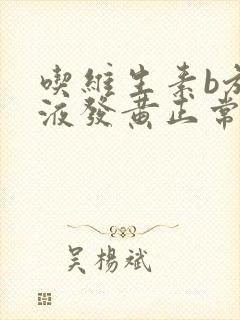 喫維生素b族
液發黃正常
吳楊斌